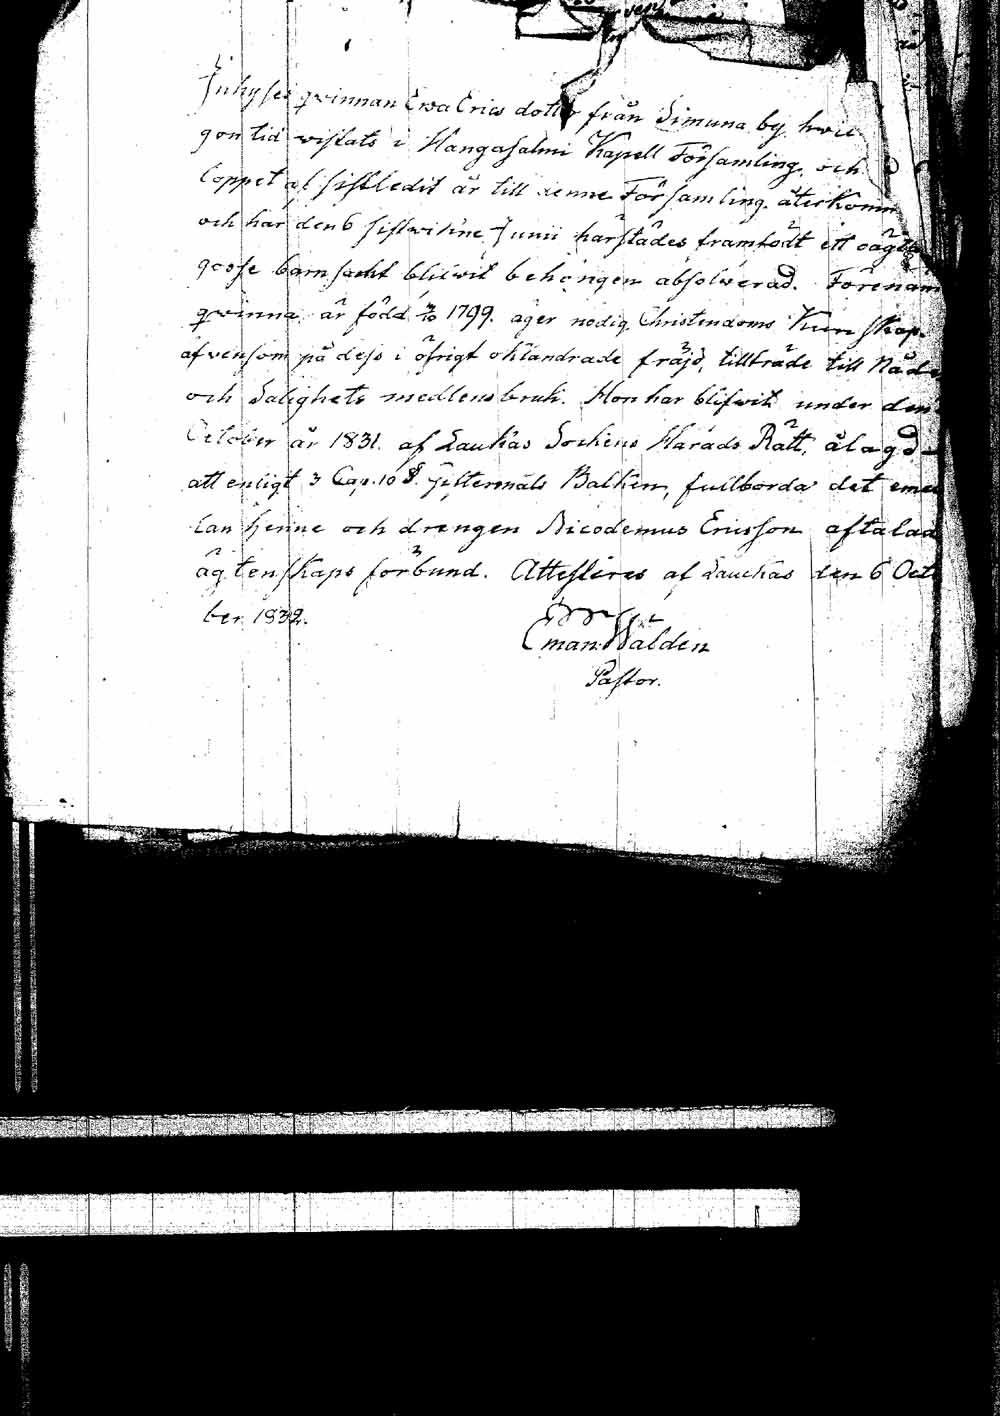 Inhyses qvinnan Ewa Erics dotter från Simuna by, hwil
gon tid wistats i Hangasalmi Kapell Församling, och
loppet af sistledit år till denne Församling återkomm
och har den 6 sistwikne Junii härstädes framfödt ett oägta
gosse barn samt blifwit behörigen absolwerad. Förenäm
qwinna är född 1799. äger nödig Christendoms Kunskap
äfvensom på dess i öfrigt oklandrade fräjd, tillträde till Nåde
och Salighets medlens bruk. Hon har blifwit under den
October år 1831. af Laukas Sockens Härads Rätt, ålagd
att enligt 3 Cap. 10 §. Giftermåls Balken, fullborda det emel
lan henne och drengen Nicodemus Ericsson aftalad
ägtenskaps förbund. Attesteres af Laukas den 6 Octo
ber 1832.
Eman: Walden
Pastor.